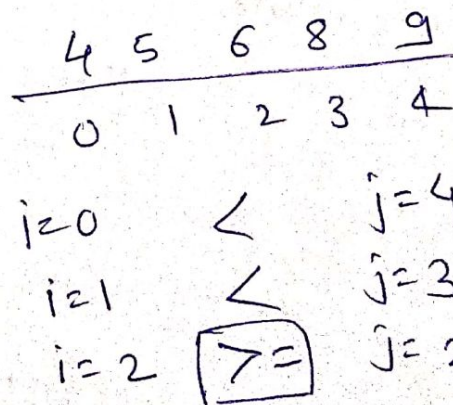 4 5 6 8 9
0 1 2 3 4
i=0 < j=4
i=1 < j=3
i=2 >= j=